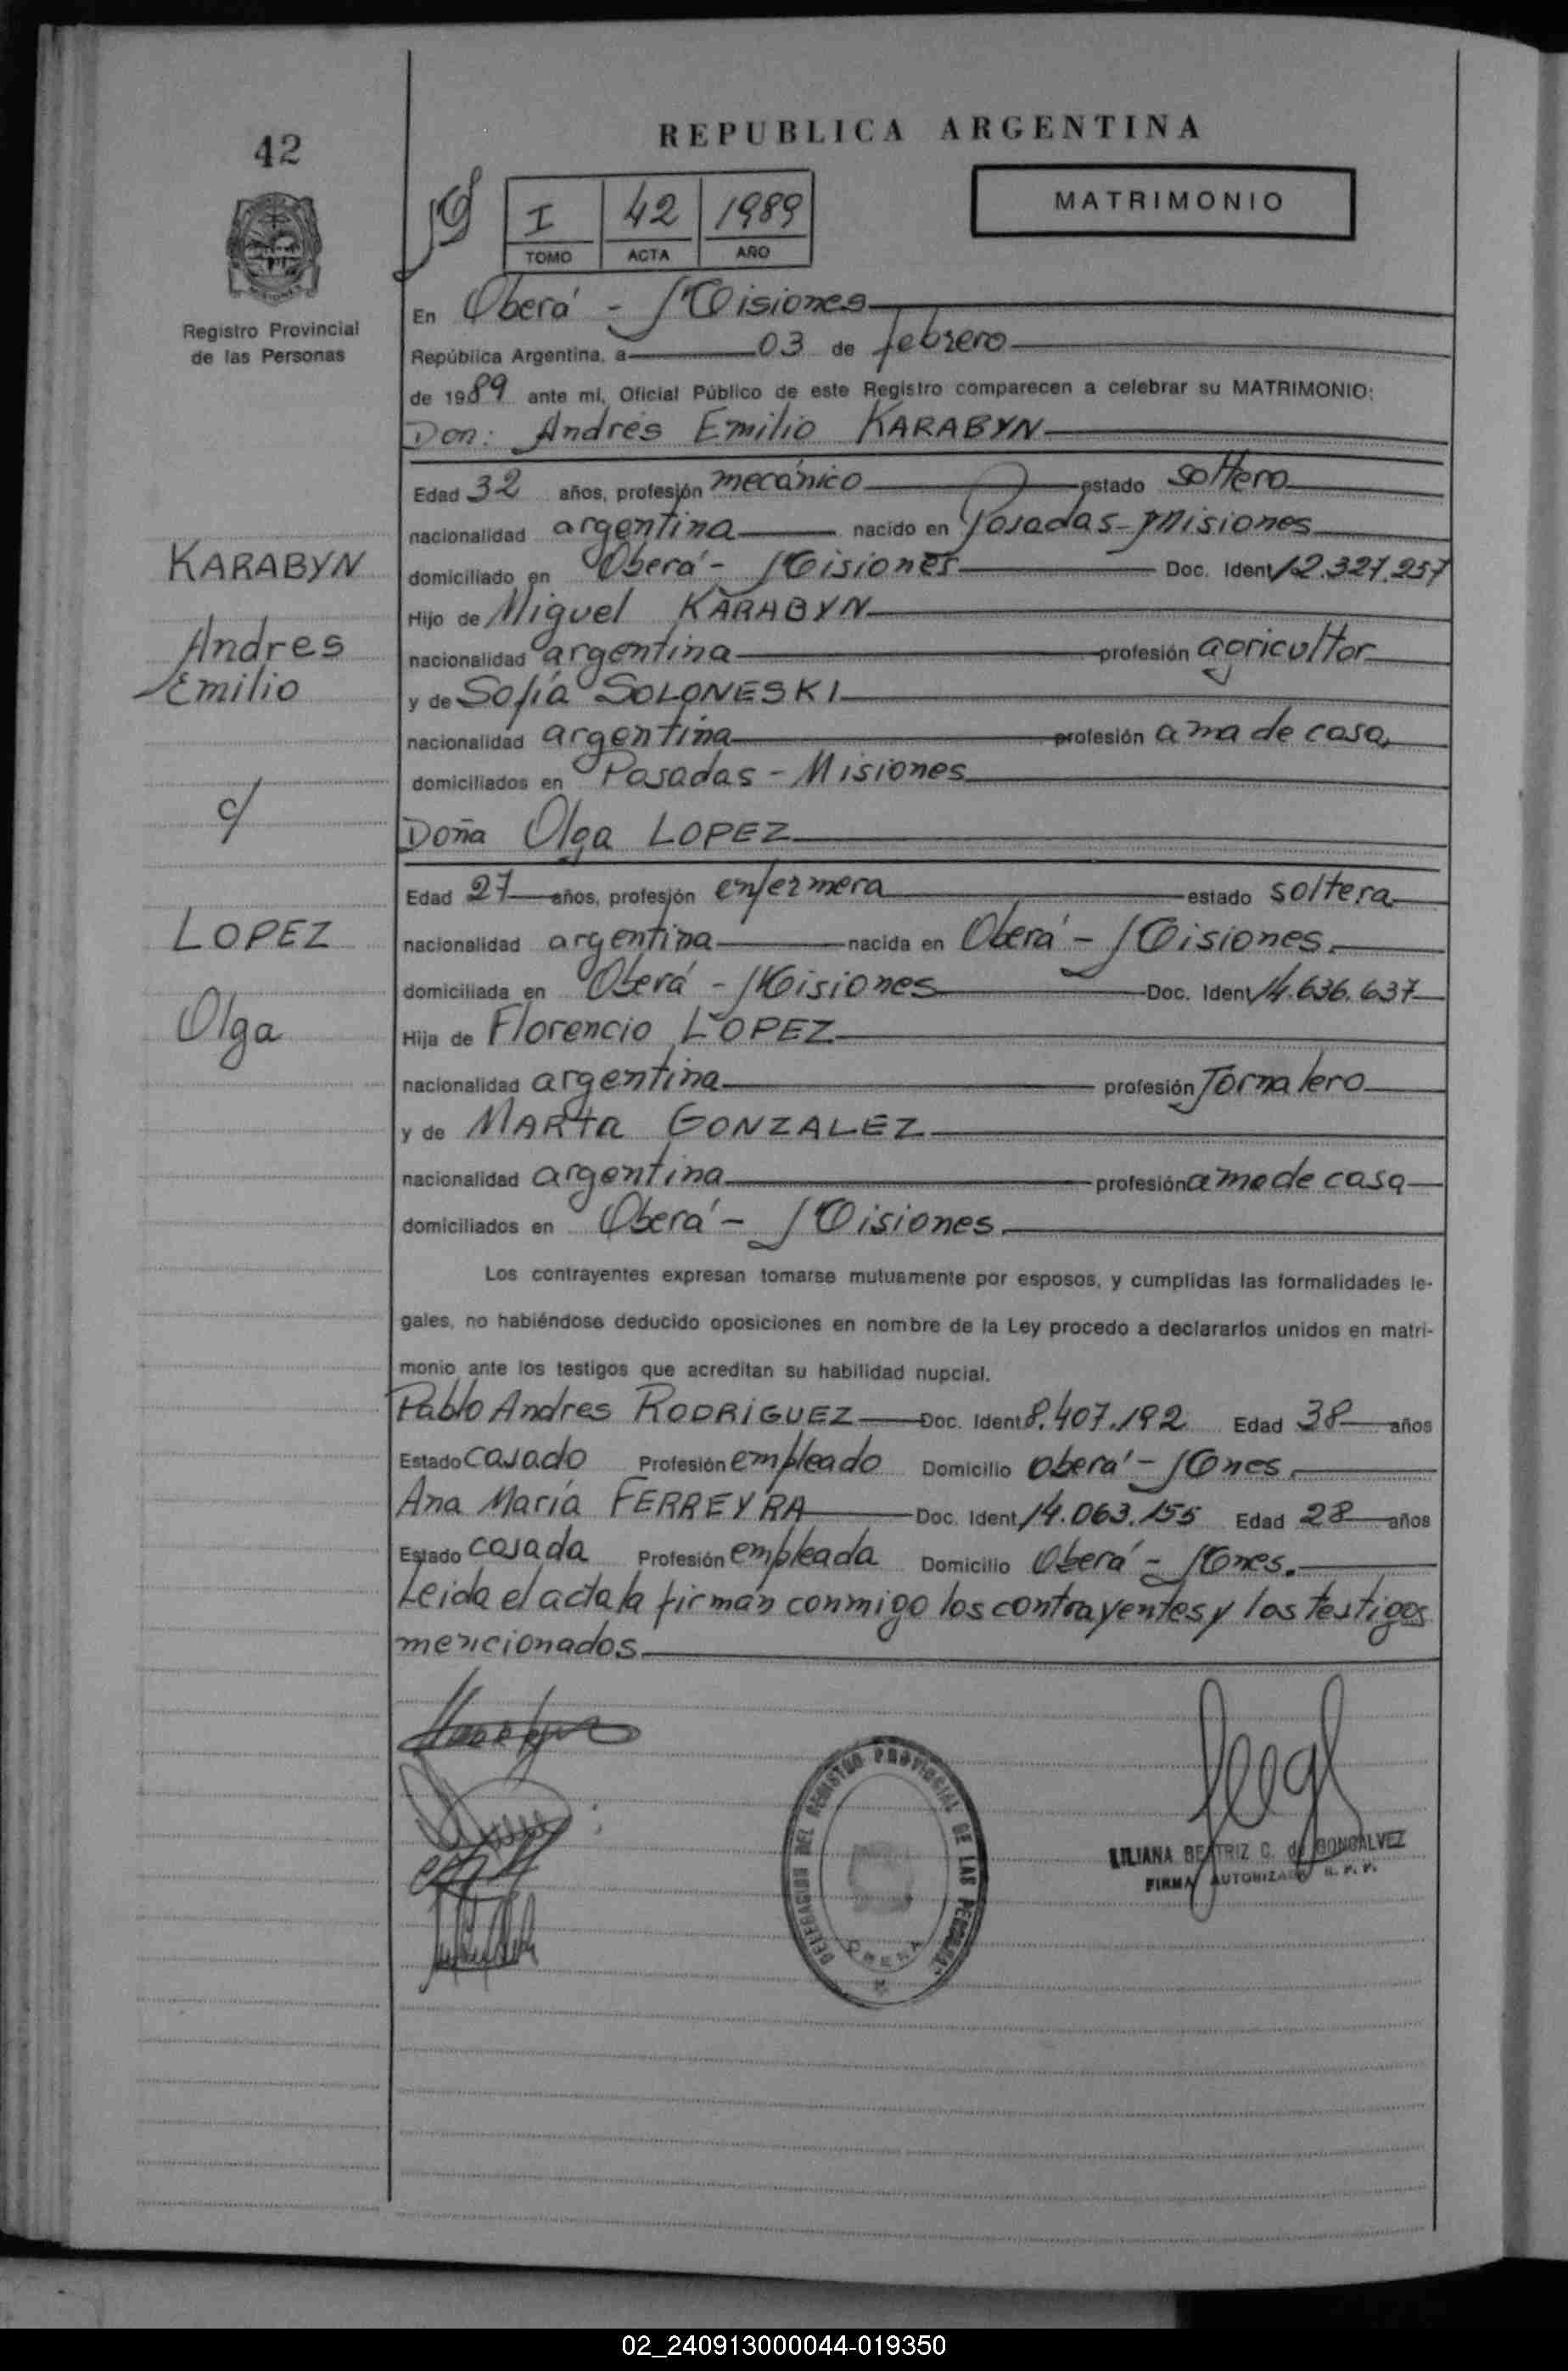 42
REPUBLICA ARGENTINA
MATRIMONIO
I 42 1989
TOMO ACTA AÑO
Registro Provincial
de las Personas
En Oberá - Misiones
República Argentina, a 03 de febrero
de 1989 ante mi, Oficial Público de este Registro comparecen a celebrar su MATRIMONIO:
Don: Andrés Emilio KARABYN
Edad 32 años, profesión mecánico estado soltero
nacionalidad argentina nacido en Posadas-Misiones
domiciliado en Oberá - Misiones Doc. Ident 12.327.257
Hijo de Miguel KARABYN
nacionalidad argentina profesión agricultor
y de Sofía SOLONESKI
nacionalidad argentina profesión ama de casa
domiciliados en Posadas - Misiones
KARABYN
Andres
Emilio
c/
LOPEZ
Olga
Doña Olga LOPEZ
Edad 27 años, profesión enfermera estado soltera
nacionalidad argentina nacida en Oberá - Misiones.
domiciliada en Oberá - Misiones Doc. Ident 14.636.637
Hija de Florencio LOPEZ
nacionalidad argentina profesión Jornalero
y de MARTA GONZALEZ
nacionalidad argentina profesión ama de casa
domiciliados en Oberá - Misiones.
Los contrayentes expresan tomarse mutuamente por esposos, y cumplidas las formalidades le-
gales, no habiéndose deducido oposiciones en nombre de la Ley procedo a declararlos unidos en matri-
monio ante los testigos que acreditan su habilidad nupcial.
Pablo Andres RODRIGUEZ Doc. Ident 8.407.192 Edad 38 años
Estado casado Profesión empleado Domicilio Oberá - Mnes.
Ana María FERREYRA Doc. Ident 14.063.155 Edad 28 años
Estado casada Profesión empleada Domicilio Oberá - Mnes.
Leida el acta la firman conmigo los contrayentes y los testigos
mencionados
DELEGACION DEL REGISTRO PROVINCIAL DE LAS PERSONAS
OBERA
LILIANA BEATRIZ C. de GONSALVEZ
FIRMA AUTORIZADA R. P. P.
02_240913000044-019350